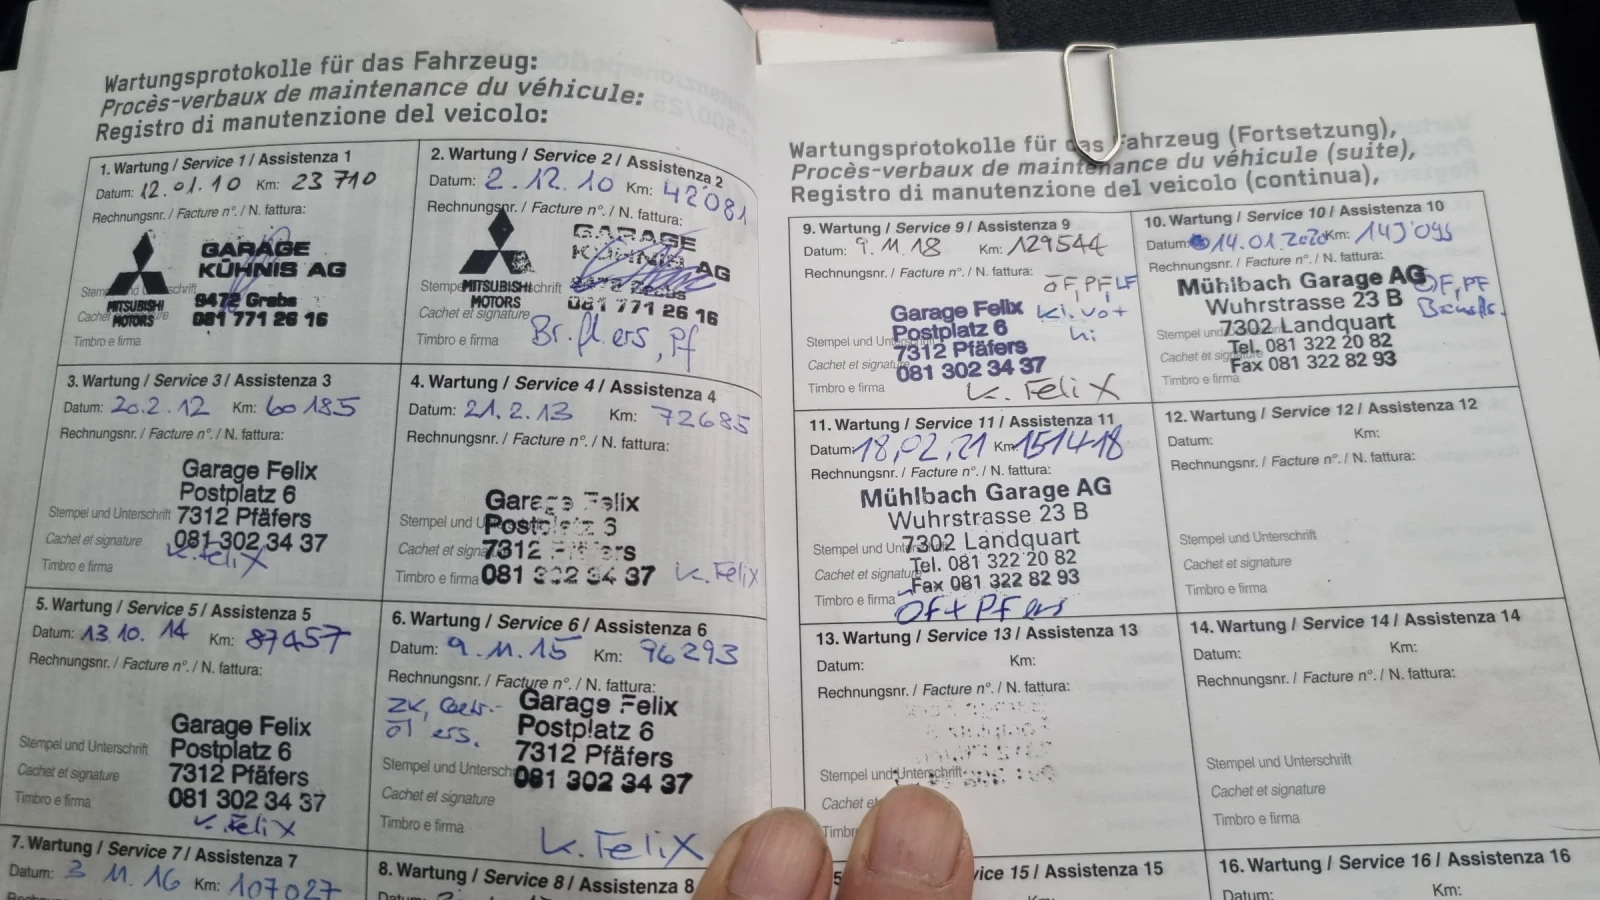 Wartungsprotokolle für das Fahrzeug:
Procès-verbaux de maintenance du véhicule:
Registro di manutenzione del veicolo:
1. Wartung / Service 1 / Assistenza 1
Datum: 12.01.10 Km: 23 710
Rechnungsnr. / Facture n°. / N. fattura:
GARAGE
KÜHNIS AG
MITSUBISHI
MOTORS
9472 Grabs
081 771 26 16
Timbro e firma
2. Wartung / Service 2 / Assistenza 2
Datum: 2.12.10 Km: 42081
Rechnungsnr. / Facture n°. / N. fattura:
GARAGE
KÜHNIS AG
MITSUBISHI
MOTORS
081 771 26 16
Cachet et signature
Timbro e firma
Br.fl. ers, Pf
3. Wartung / Service 3 / Assistenza 3
Datum: 20.2.12 Km: 60185
Rechnungsnr. / Facture n°. / N. fattura:
Garage Felix
Postplatz 6
Stempel und Unterschrift 7312 Pfäfers
Cachet et signature 081 302 34 37
Timbro e firma K. Felix
4. Wartung / Service 4 / Assistenza 4
Datum: 21.2.13 Km: 72685
Rechnungsnr. / Facture n°. / N. fattura:
Garage Felix
Postplatz 6
7312 Pfäfers
Timbro e firma 081 302 34 37 K. Felix
5. Wartung / Service 5 / Assistenza 5
Datum: 13.10.14 Km: 87457
Rechnungsnr. / Facture n°. / N. fattura:
Garage Felix
Stempel und Unterschrift Postplatz 6
Cachet et signature 7312 Pfäfers
Timbro e firma 081 302 34 37
K. Felix
6. Wartung / Service 6 / Assistenza 6
Datum: 9.11.15 Km: 96293
Rechnungsnr. / Facture n°. / N. fattura:
ZK,
öl ers.
Garage Felix
Postplatz 6
7312 Pfäfers
081 302 34 37
Cachet et signature
Timbro e firma
K. Felix
7. Wartung / Service 7 / Assistenza 7
Datum: 3 11.16 Km: 107027
8. Wartung / Service 8 / Assistenza 8
Wartungsprotokolle für das Fahrzeug (Fortsetzung),
Procès-verbaux de maintenance du véhicule (suite),
Registro di manutenzione del veicolo (continua),
9. Wartung / Service 9 / Assistenza 9
Datum: 9.11.18 Km: 129544
Rechnungsnr. / Facture n°. / N. fattura:
ÖF, PF LF
Garage Felix
Postplatz 6
7312 Pfäfers
081 302 34 37
Cachet et signature
Timbro e firma
K. Felix
10. Wartung / Service 10 / Assistenza 10
Datum: 14.01.2020 Km:
Rechnungsnr. / Facture n°. / N. fattura:
Mühlbach Garage AG ÖF, PF
Wuhrstrasse 23 B
7302 Landquart
Tel. 081 322 20 82
Fax 081 322 82 93
Timbro e firma
11. Wartung / Service 11 / Assistenza 11
Datum: 18,02,21 Km 151418
Rechnungsnr. / Facture n°. / N. fattura:
Mühlbach Garage AG
Wuhrstrasse 23 B
7302 Landquart
Tel. 081 322 20 82
Fax 081 322 82 93
Timbro e firma
Öf + PF ers
12. Wartung / Service 12 / Assistenza 12
Datum: Km:
Rechnungsnr. / Facture n°. / N. fattura:
Stempel und Unterschrift
Cachet et signature
Timbro e firma
13. Wartung / Service 13 / Assistenza 13
Datum: Km:
Rechnungsnr. / Facture n°. / N. fattura:
Stempel und Unterschrift
Cachet
14. Wartung / Service 14 / Assistenza 14
Datum: Km:
Rechnungsnr. / Facture n°. / N. fattura:
Stempel und Unterschrift
Cachet et signature
Timbro e firma
Service 15 / Assistenza 15
Km:
16. Wartung / Service 16 / Assistenza 16
Datum: Km: